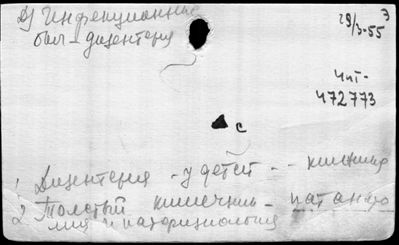 Д) Инфекционные
бол - дизентерия
29/3-55 Э
Чит-
472773
с
1 Дизентерия - у детей - - кишечник
2 Толстый кишечник - патанато
мия и патофизиология